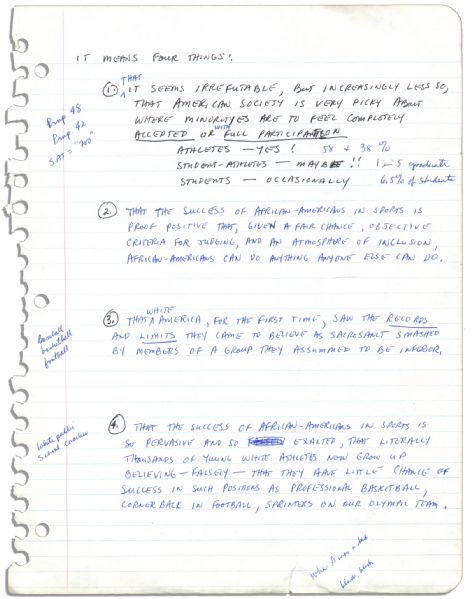 IT MEANS FOUR THINGS:
THAT
1. IT SEEMS IRREFUTABLE, BUT INCREASINGLY LESS SO,
THAT AMERICAN SOCIETY IS VERY PICKY ABOUT
WHERE MINORITIES ARE TO FEEL COMPLETELY
WITH
ACCEPTED OR FULL PARTICIPATION
ATHLETES — YES! 58 + 38 %
STUDENT-ATHLETES — MAYBE!! 1 in 5 graduate
STUDENTS — OCCASIONALLY 6.5% of students
Prop 48
Prop 42
SAT = "700"
2. THAT THE SUCCESS OF AFRICAN-AMERICANS IN SPORTS IS
PROOF POSITIVE THAT, GIVEN A FAIR CHANCE, OBJECTIVE
CRITERIA FOR JUDGING, AND AN ATMOSPHERE OF INCLUSION,
AFRICAN-AMERICANS CAN DO ANYTHING ANYONE ELSE CAN DO.
WHITE
3. THAT AMERICA, FOR THE FIRST TIME, SAW THE RECORDS
AND LIMITS THEY CAME TO BELIEVE AS SACROSANCT SMASHED
BY MEMBERS OF A GROUP THEY ASSUMMED TO BE INFERIOR.
Baseball
basketball
football
4. THAT THE SUCCESS OF AFRICAN-AMERICANS IN SPORTS IS
SO PERVASIVE AND SO EXALTED, THAT LITERALLY
THOUSANDS OF YOUNG WHITE ATHLETES NOW GROW UP
BELIEVING — FALSELY — THAT THEY HAVE LITTLE CHANCE OF
SUCCESS IN SUCH POSITIONS AS PROFESSIONAL BASKETBALL,
CORNERBACK IN FOOTBALL, SPRINTERS ON OUR OLYMPIC TEAM.
White public
School coaches